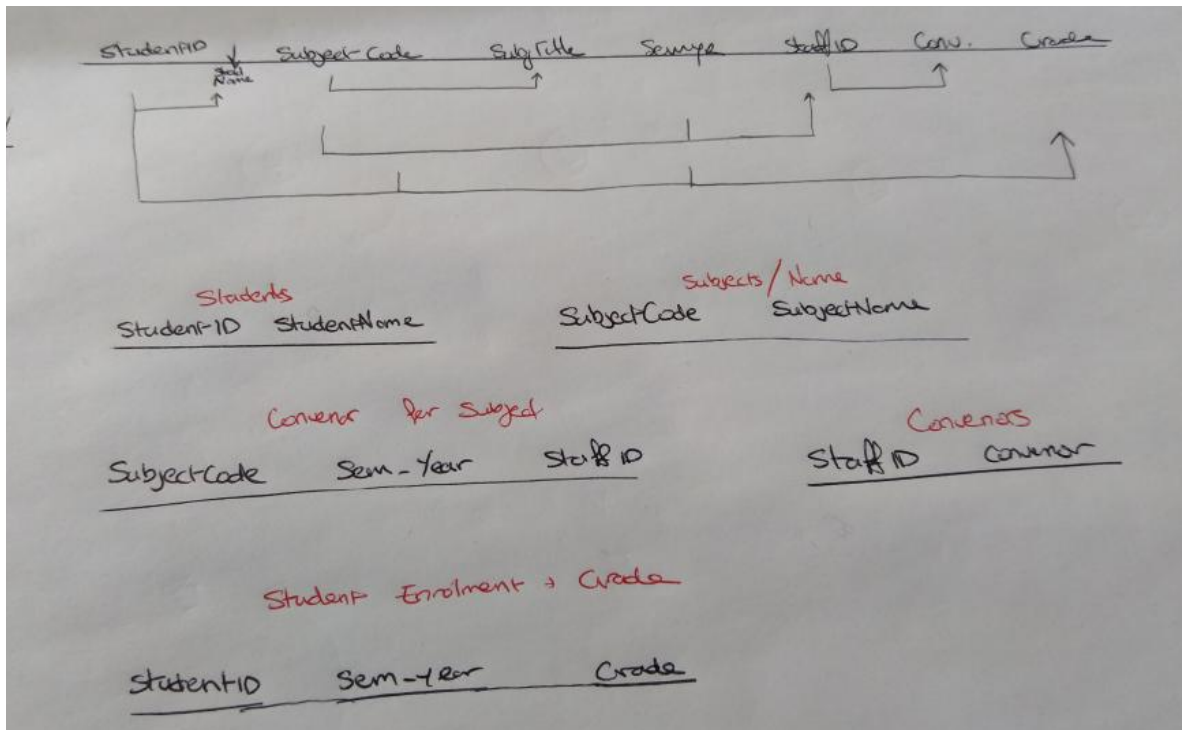 StudentID Subject-Code SubjTitle Semye StaffID Conv. Grade
Stud
Name
Students
Student-ID StudentName
Subjects/Name
SubjectCode SubjectName
Convenor Per Subject
SubjectCode Sem-Year StaffID
Convenors
StaffID Convenor
Student Enrolment + Grade
StudentID Sem-Year Grade